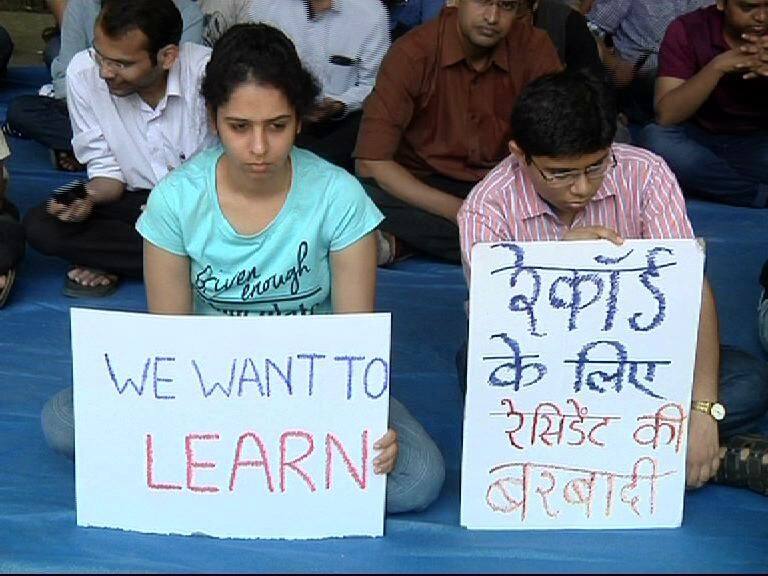 Given
enough
WE WANT TO
LEARN
रेकॉर्ड
के लिए
रेसिडेंट की
बरबादी